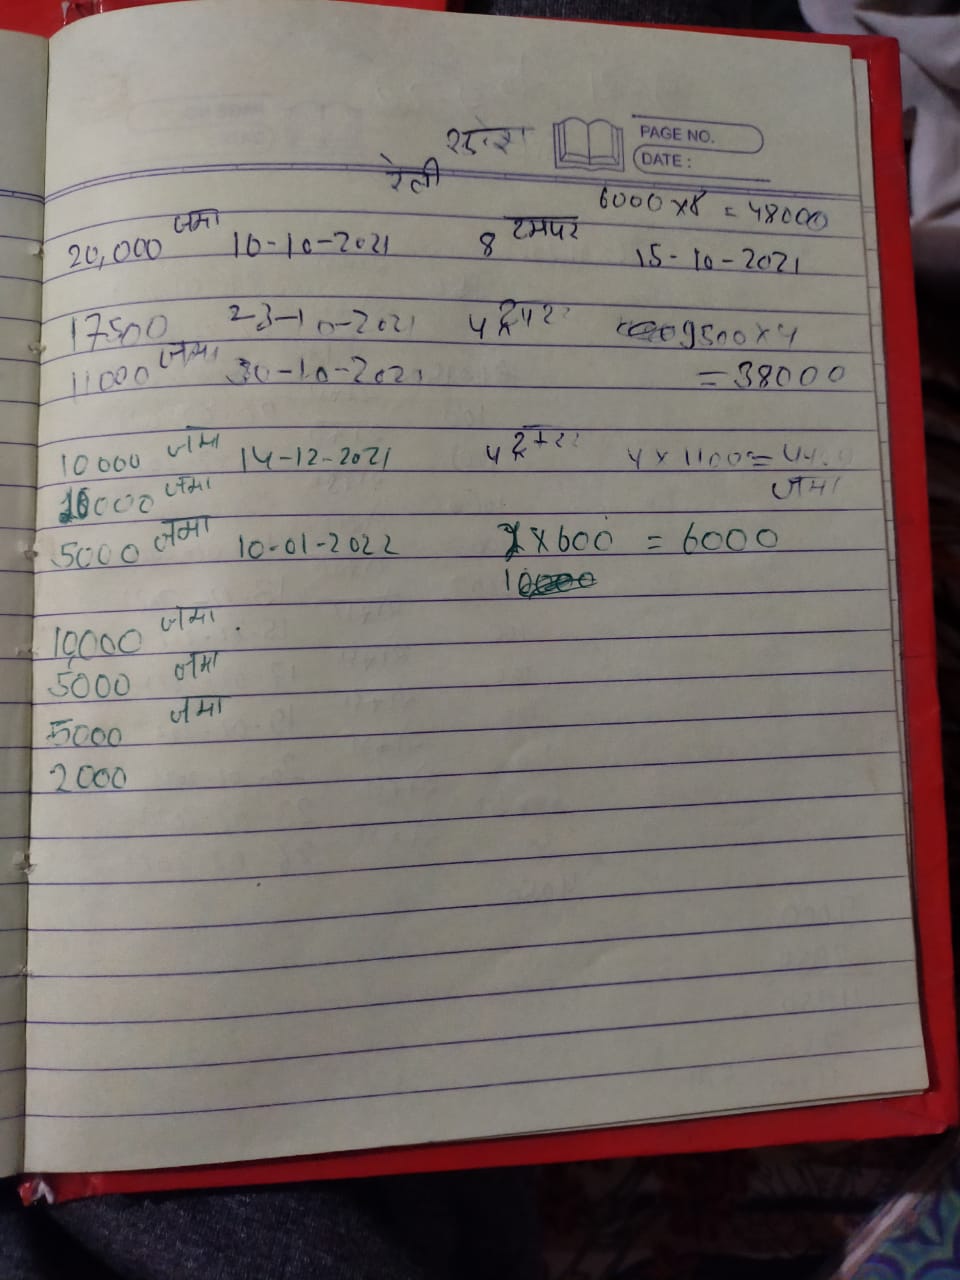 PAGE NO.
DATE :
रेती
6000 x 8 = 48000
20,000 जमा 10-10-2021 8 टमपर 15-10-2021
17500 23-10-2021 4 9500 x 4
11000 जमा 30-10-2021 = 38000
10000 जमा 14-12-2021 4 4 x 11000 =
10000 जमा जमा
5000 जमा 10-01-2022 x 600 = 6000
10,000 जमा
5000 जमा
5000 जमा
2000